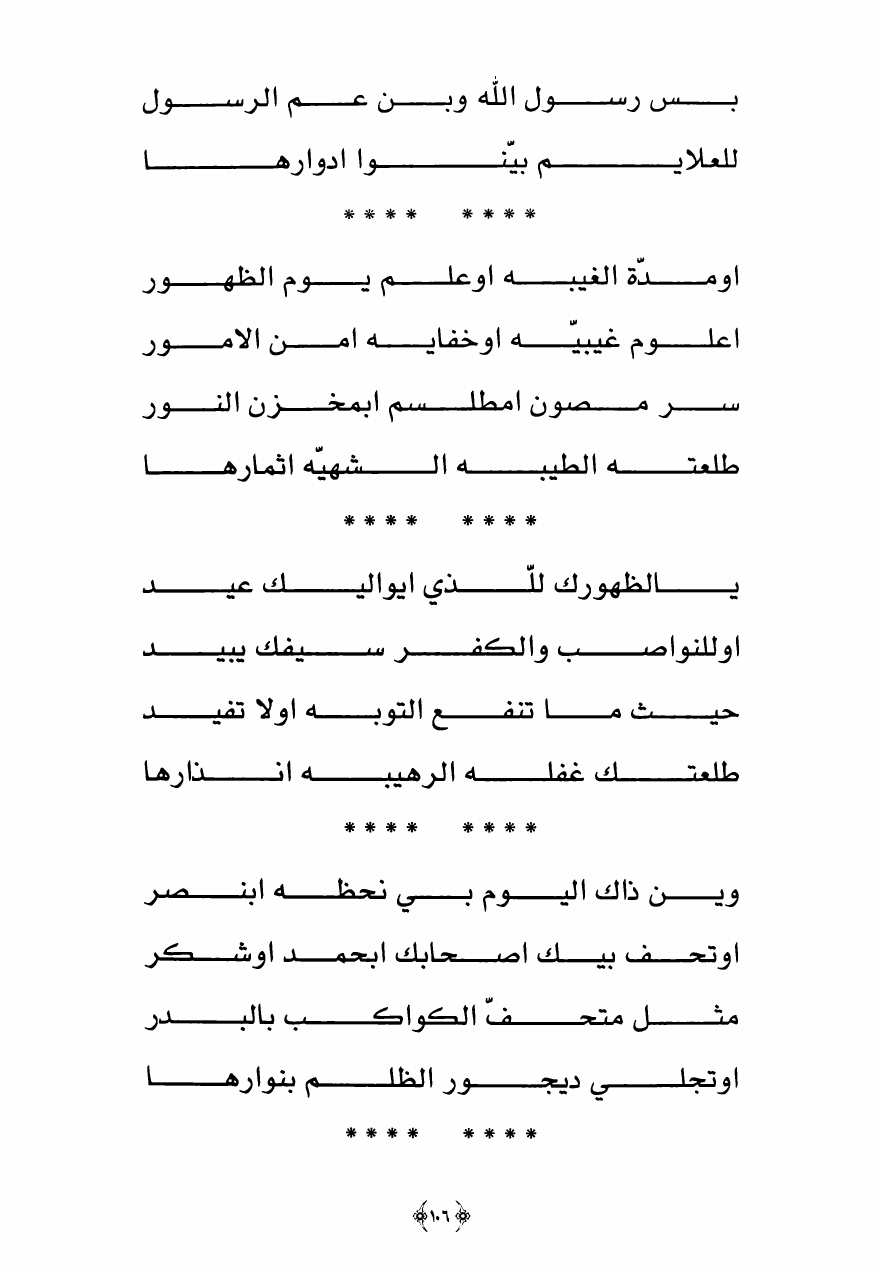 بس رسول الله وبن عم الرسول
للعلايم بيّنوا ادوارها
**** ****
اومدّة الغيبه اوعلم يوم الظهور
اعلوم غيبيّه اوخفايه امن الامور
سر مصون امطلسم ابمخزن النور
طلعته الطيبه الشهيّه اثمارها
**** ****
يالظهورك للّذي ايواليك عيد
اوللنواصب والكفر سيفك يبيد
حيث ما تنفع التوبه اولا تفيد
طلعتك غفله الرهيبه انذارها
**** ****
وين ذاك اليوم بي نحظه ابنصر
اوتحف بيك اصحابك ابحمد اوشكر
مثل متحفّ الكواكب بالبدر
اوتجلي ديجور الظلم بنوارها
**** ****
﴿١٠٦﴾